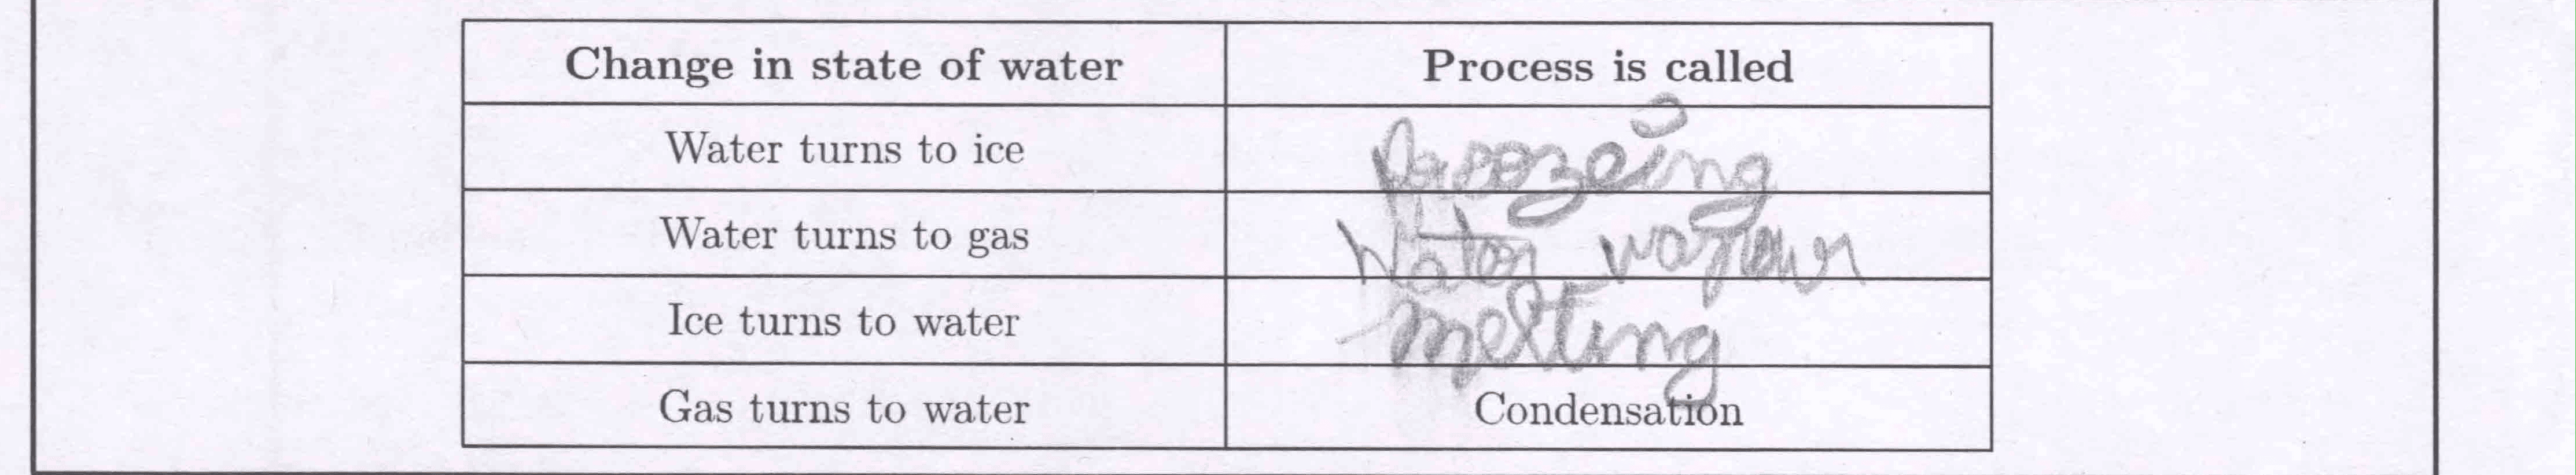 Change in state of water Process is called
Water turns to ice
Water turns to gas Water
Ice turns to water melting
Gas turns to water Condensation